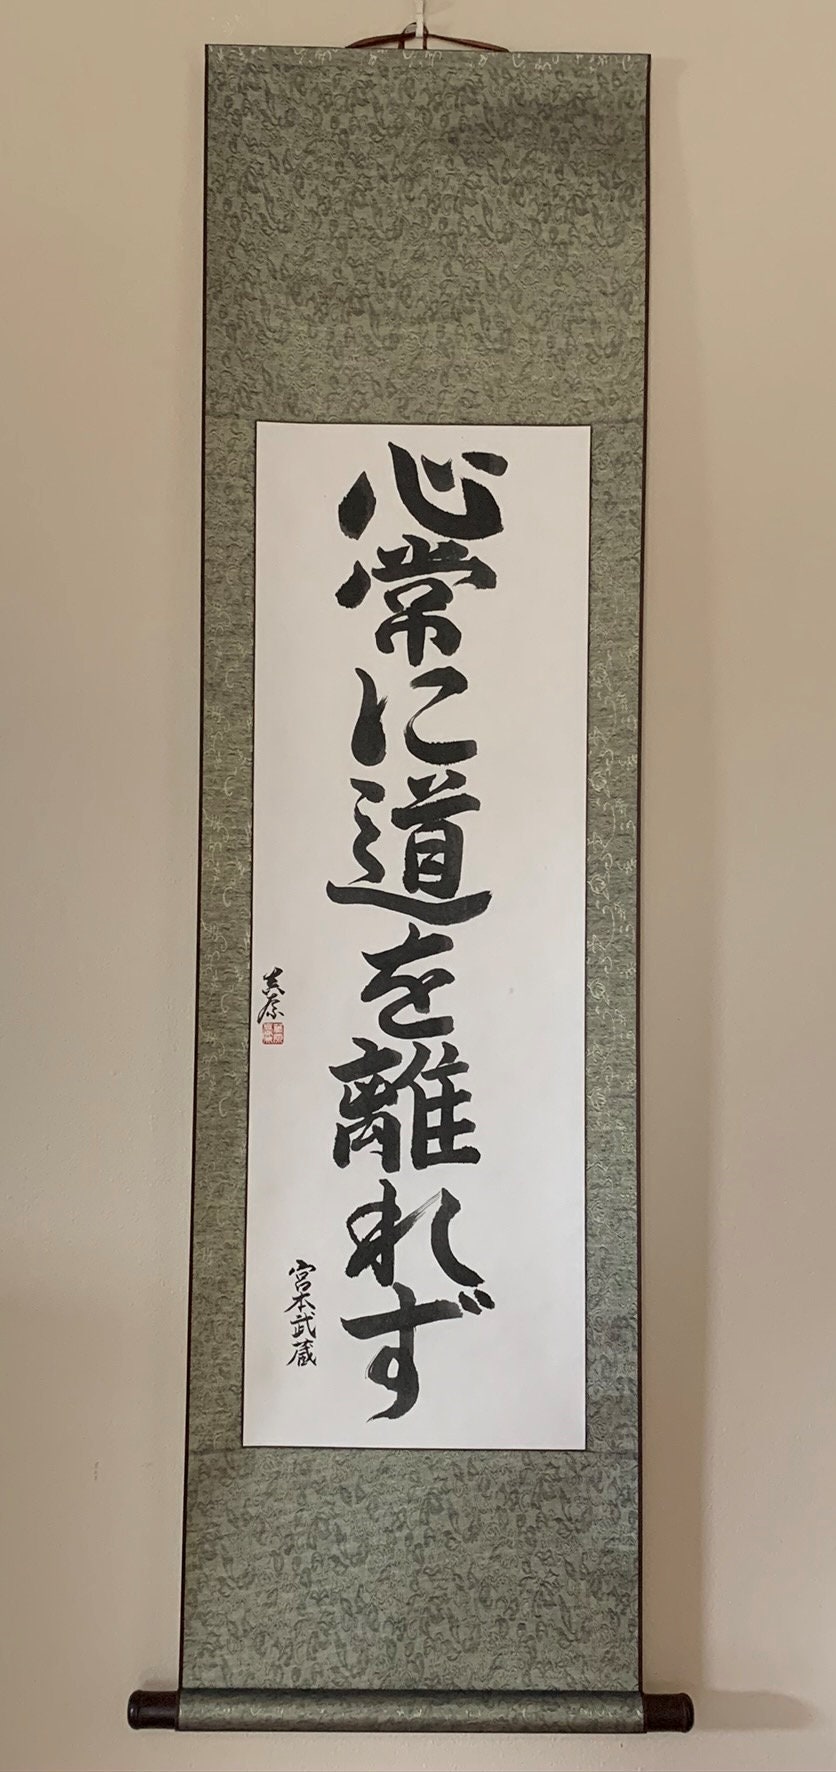 心常に道を離れず
宮本武蔵